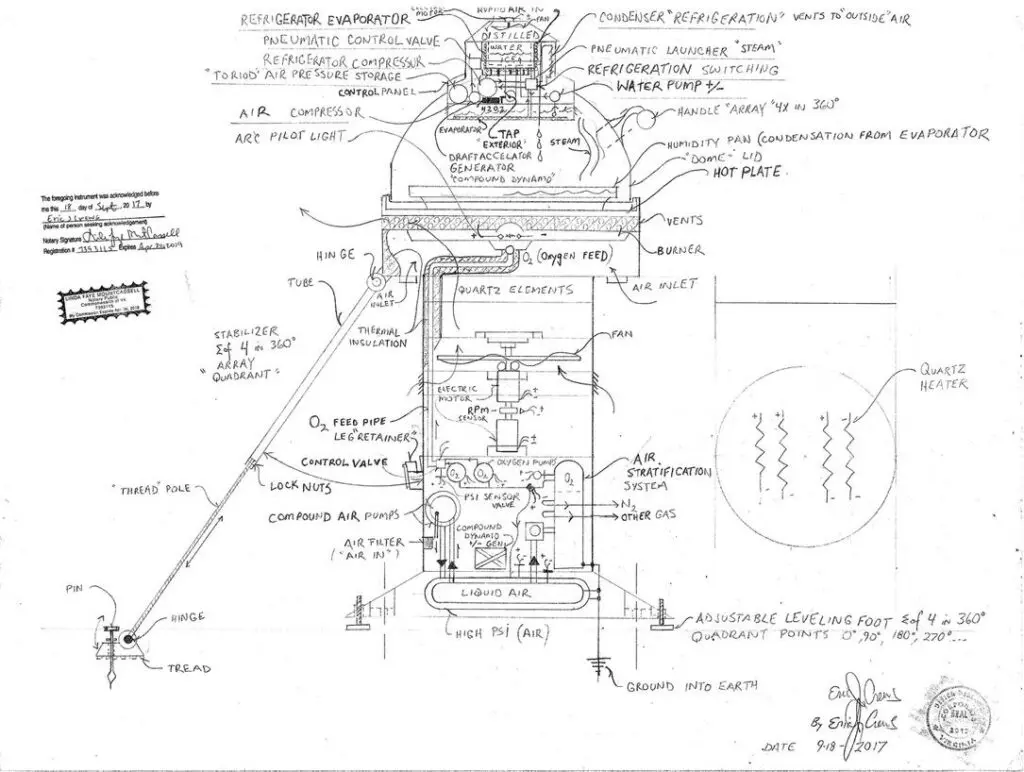 REFRIGERATOR EVAPORATOR
PNEUMATIC CONTROL VALVE
REFRIGERATOR COMPRESSUR
"TORIOD" AIR PRESSURE STORAGE
CONTROL PANEL
AIR COMPRESSOR
ARC PILOT LIGHT
MOTOR
HUMID AIR IN
FAN
DISTILLED
WATER
EVAPORATOR
TAP
"EXTERIOR"
DRAFT ACCELATOR
GENERATOR
"COMPOUND DYNAMO"
STEAM
CONDENSER "REFRIGERATION" VENTS TO "OUTSIDE" AIR
PNEUMATIC LAUNCHER "STEAM"
REFRIGERATION SWITCHING
WATER PUMP +/-
HANDLE "ARRAY" 4X IN 360°
HUMIDITY PAN (CONDENSATION FROM EVAPORATOR
"DOME" LID
HOT PLATE.
VENTS
BURNER
AIR INLET
The foregoing instrument was acknowledged before
me this 18 day of Sept. 2017 by
Eric J Crews
(Name of person seeking acknowledgement)
Notary Signature
Registration # 7393115 Expires Apr 30 2019
LINDA FAYE MOUNTCASSELL
Notary Public
Commonwealth of Va.
7393115
My Commission Expires Apr 30, 2019
HINGE
TUBE
AIR
INLET
O2 (OXYGEN FEED)
QUARTZ ELEMENTS
THERMAL
INSULATION
STABILIZER
Σ of 4 in 360°
ARRAY
"QUADRANT"
FAN
ELECTRIC
MOTOR
RPM
SENSOR
QUARTZ
HEATER
O2 FEED PIPE
LEG "RETAINER"
CONTROL VALVE
LOCK NUTS
"THREAD" POLE
OXYGEN PUMPS
O2
O2
O2
AIR
STRATIFICATION
SYSTEM
PSI SENSOR
VALVE
N2
OTHER GAS
COMPOUND AIR PUMPS
COMPOUND
DYNAMO
+/- GEN
AIR FILTER
("AIR IN")
LIQUID AIR
HIGH PSI (AIR)
PIN
HINGE
TREAD
ADJUSTABLE LEVELING FOOT Σ of 4 in 360°
QUADRANT POINTS 0°, 90°, 180°, 270°...
GROUND INTO EARTH
Eric J Crews
By Eric J Crews
DATE 9-18-2017
CORPORATE
SEAL
VIRGINIA